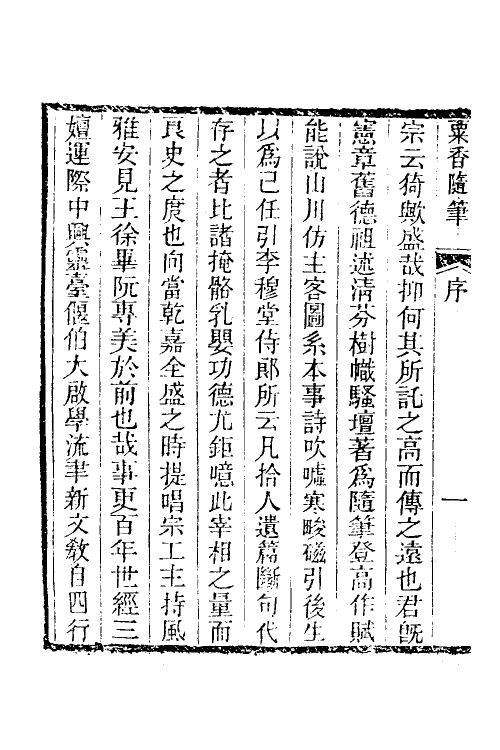 粟香隨筆 序 一
宗云猗歟盛哉抑何其所託之高而傳之遠也君旣
憲章舊德祖述淸芬樹幟騷壇著爲隨筆登高作賦
能說山川仿主客圖系本事詩吹噓寒畯磁引後生
以爲己任引李穆堂侍郞所云凡拾人遺篇斷句代
存之者比諸掩骼乳嬰功德尤鉅噫此宰相之量而
良史之度也向當乾嘉全盛之時提唱宗工主持風
雅安見王徐畢阮專美於前也哉事更百年世經三
嬗運際中興靈臺偃伯大啟學流聿新文敎自四行